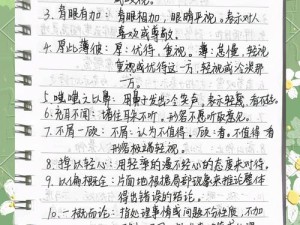 3. 青眼有加：青眼相加，眼睛平视。表示对人
喜欢或尊敬。
4. 厚此薄彼：厚：优待，重视。薄：怠慢，轻视
重视或优待这一方，轻视或冷淡那
一方。
5. 嗤之以鼻：用鼻子发出冷笑声，表示轻蔑
6. 充耳不闻：堵住耳朵不听，形容不愿听取意见。
7. 不屑一顾：不屑：认为不值得。顾：看。不值得一看
形容极端轻视。
8. 掉以轻心：用轻率的漫不经心的态度来对待。
9. 以偏概全：片面地根据局部现象来推论整体
得出错误的结论。
10. 一概而论：指处理事情或问题不分性质，不加